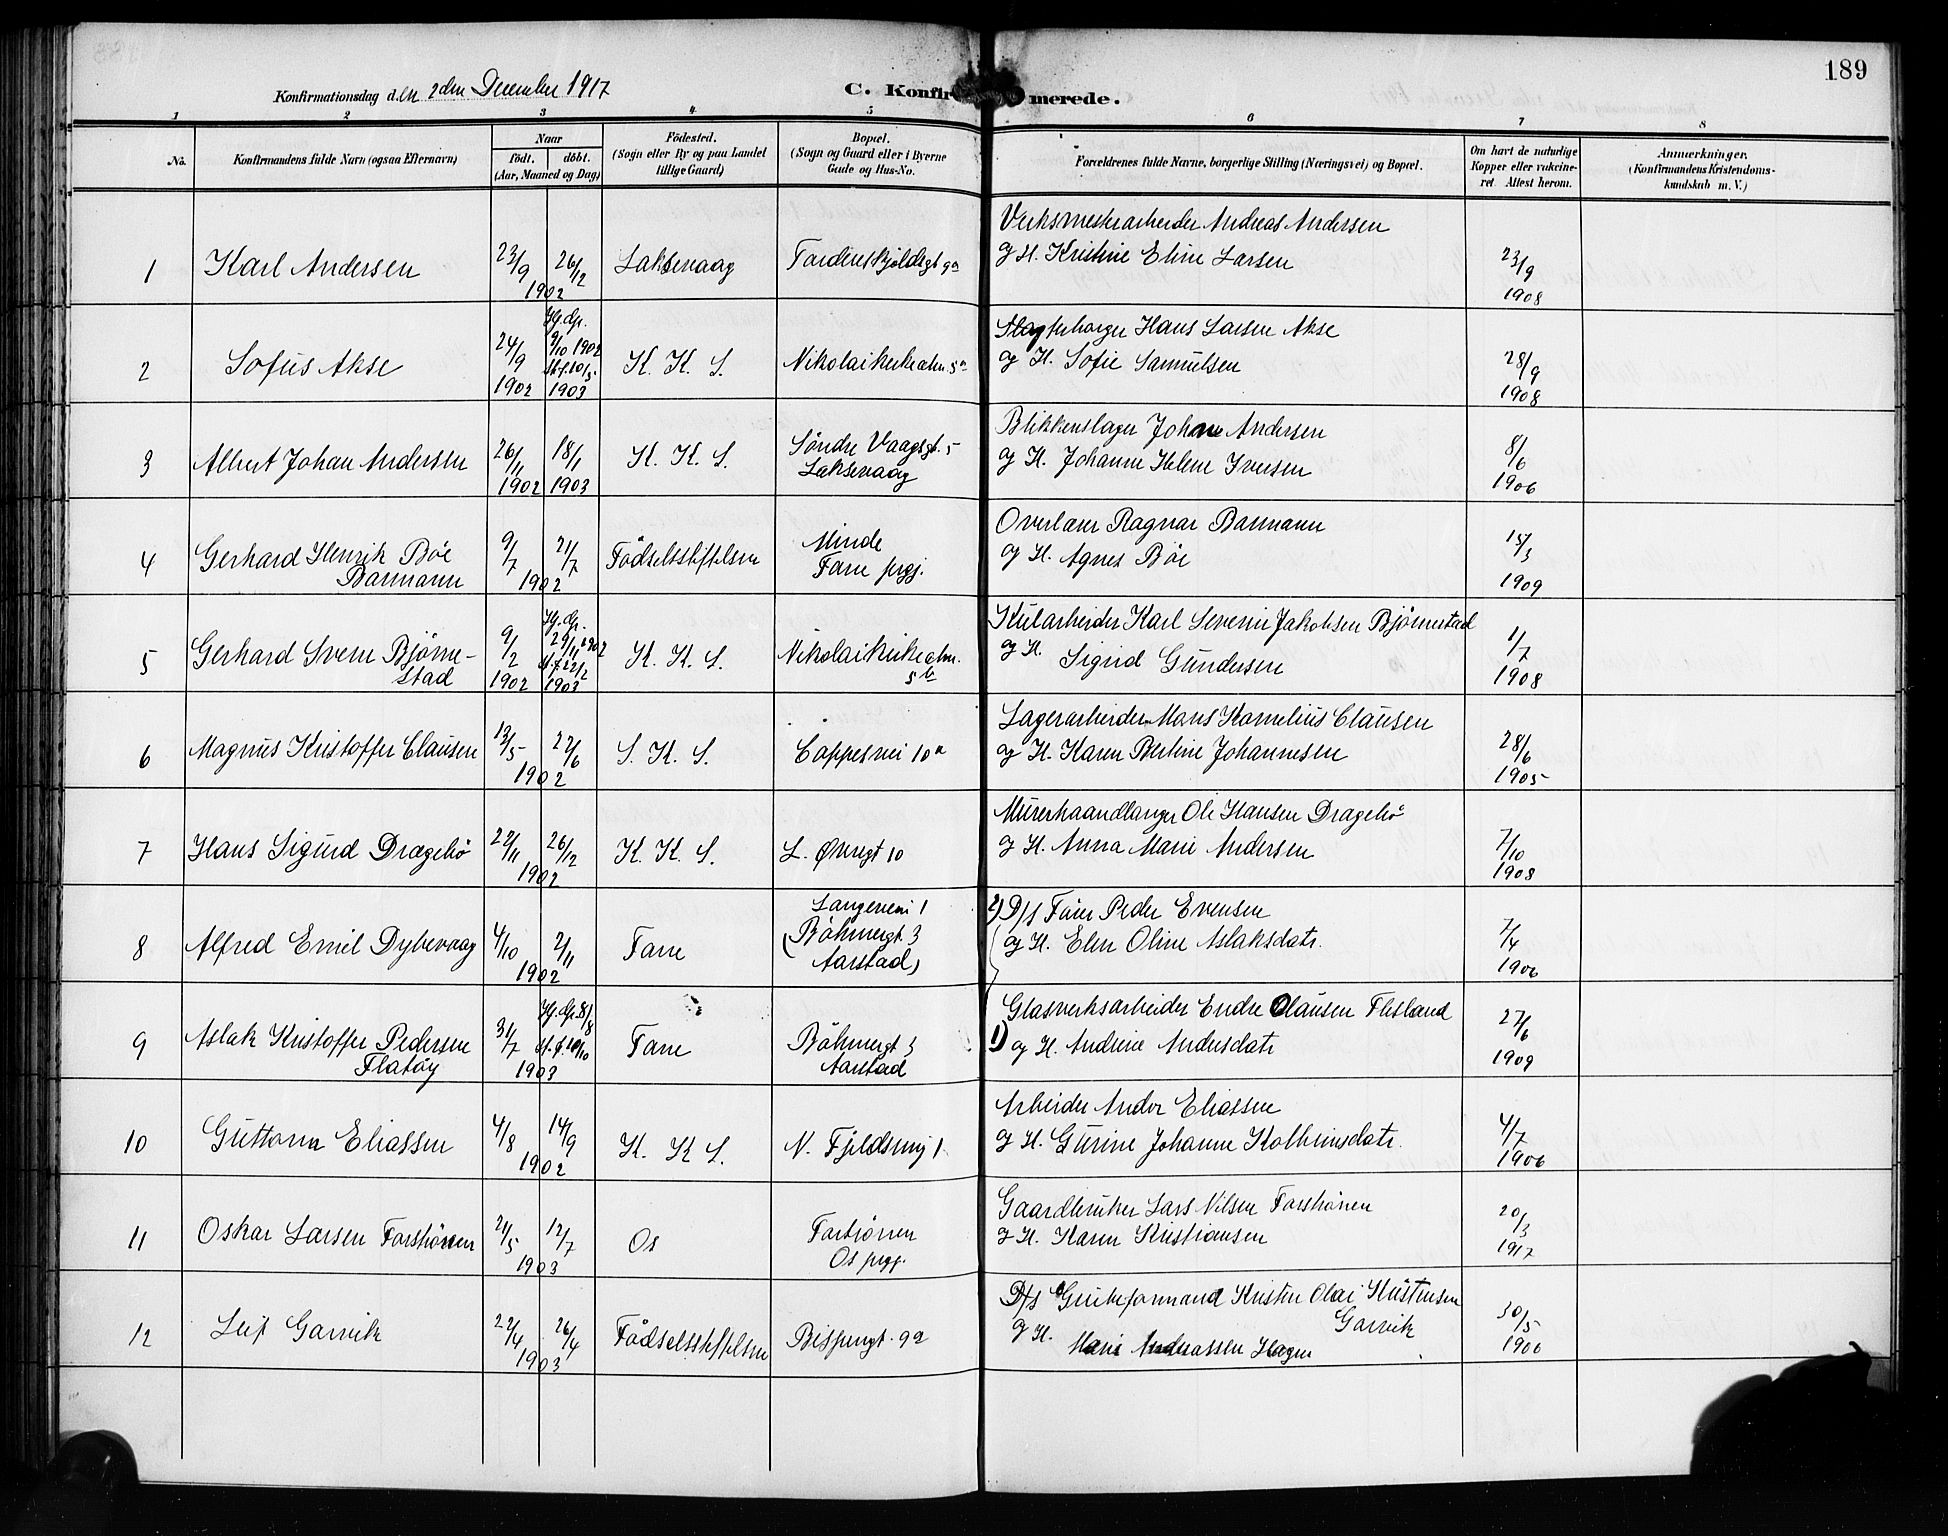 189
Konfirmationsdag den 2den December 1917
C. Konfirmerede.
1 2 3 4 5 6 7 8
No.
Konfirmandens fulde Navn (ogsaa Efternavn)
Naar
födt. döbt.
(Aar, Maaned og Dag)
Födested.
(Sogn eller By og paa Landet
tillige Gaard)
Bopæl.
(Sogn og Gaard eller i Byerne
Gade og Hus-No.
Forældrenes fulde Navne, borgerlige Stilling (Næringsvei) og Bopæl.
Om havt de naturlige
Kopper eller vakcine-
ret. Attest herom.
Anmærkninger.
(Konfirmandens Kristendoms-
kundskab m. V.)
1 Karl Andersen 23/9 26/12 1902 Laksevaag Tordenskjoldsgt 9a
Verksmesterarbeider Andreas Andersen
og H. Kristine Eline Larsen 23/9 1908
2 Sofus Akse 24/9 1902 Hj. dp. 9/10 1902 St. f. 10/5 1903 K. K. S. Nikolaikirkealm. 5a
Hans Larsen Akse
og H. Sofie Samuelsen 28/9 1908
3 Albert Johan Andersen 26/11 1902 18/1 1903 K. K. S. Söndre Vaagsgt. 5
Laksevaag
Blikkenslager Johan Andersen
og H. Johanne Helene Iversen 8/6 1906
4 Gerhard Henrik Böe
Barmann 9/7 21/7 1902 Födselsstiftelsen Minde
Fane prgj.
Overlærer Ragnar Barmann
og H. Agnes Böe 15/3 1909
5 Gerhard Sverre Bjørne-
stad 9/2 1902 Hj. dp. 29/11 1902 St. f. 22/2 1903 K. K. S. Nikolaikirkealm.
5b
Kularbeider Karl Severin Jakobsen Bjørnestad
og H. Sigrid Gundersen 1/7 1908
6 Magnus Kristoffer Clausen 13/5 22/6 1902 S. K. S. Coppesvei 10a
Lagerarbeider Hans Kornelius Clausen
og H. Karen Bertine Johannesen 28/6 1905
7 Hans Sigurd Dragebö 22/11 26/12 1902 K. K. S. L. Øvregt 10
Murerhaandlanger Ole Hansen Dragebö
og H. Anna Marie Andersen 7/10 1908
8 Alfred Emil Dybevaag 4/10 2/11 1902 Fane Langeveien 1
(Böhmergt 3
Aarstad)
2) D/s Faier Peder Evensen
og H. Elen Oline Aslaksdatr. 7/4 1906
9 Aslak Kristoffer Pedersen
Flatöy 31/7 Hj. dp. 8/8 St. f. 10/10 1903 Fane Böhmergt 3
Aarstad
1) Glasverksarbeider Endre Olausen Flesland
og H. Andrine Andersdatr 27/6 1909
10 Guttorm Eliassen 4/8 14/9 1902 K. K S. N. Fjeldsmug 1
Arbeider Andor Eliassen
og H. Gurine Johanne Kolbeinsdatr. 4/7 1906
11 Oskar Larsen Forströnen 21/5 12/7 1903 Os Forströnen
Os prgj.
Gaardbruker Lars Nilsen Forströnen
og H. Karen Kristiansen 20/3 1917
12 Leif Garvik 22/4 26/4 1903 Födselsstiftelsen Bispengt. 9a
D/s Grubeformand Kristen Olai Kristensen
Garvik
og H. Marie Andreassen Hagen 30/5 1906